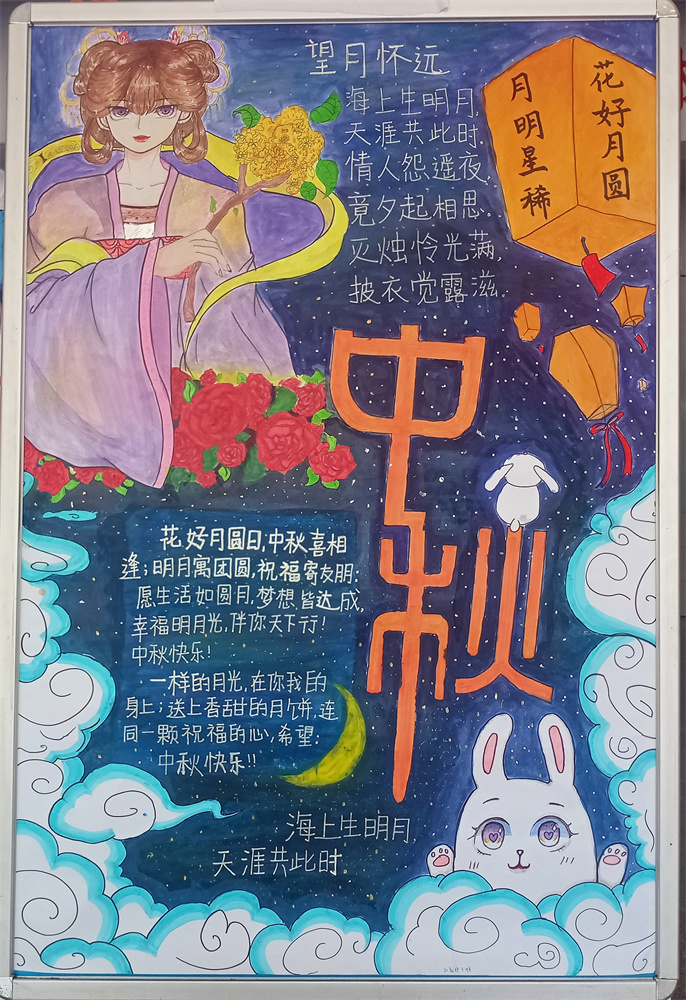 望月怀远
海上生明月,
天涯共此时.
情人怨遥夜,
竟夕起相思.
灭烛怜光满,
披衣觉露滋.
花好月圆
月明星稀
中秋
花好月圆日,中秋喜相
逢;明月寓团圆,祝福寄友朋:
愿生活如圆月,梦想皆达成,
幸福明月光,伴你天下行!
中秋快乐!
一样的月光,在你我的
身上;送上香甜的月饼,连
同一颗祝福的心,希望:
中秋快乐!!
海上生明月
天涯共此时.